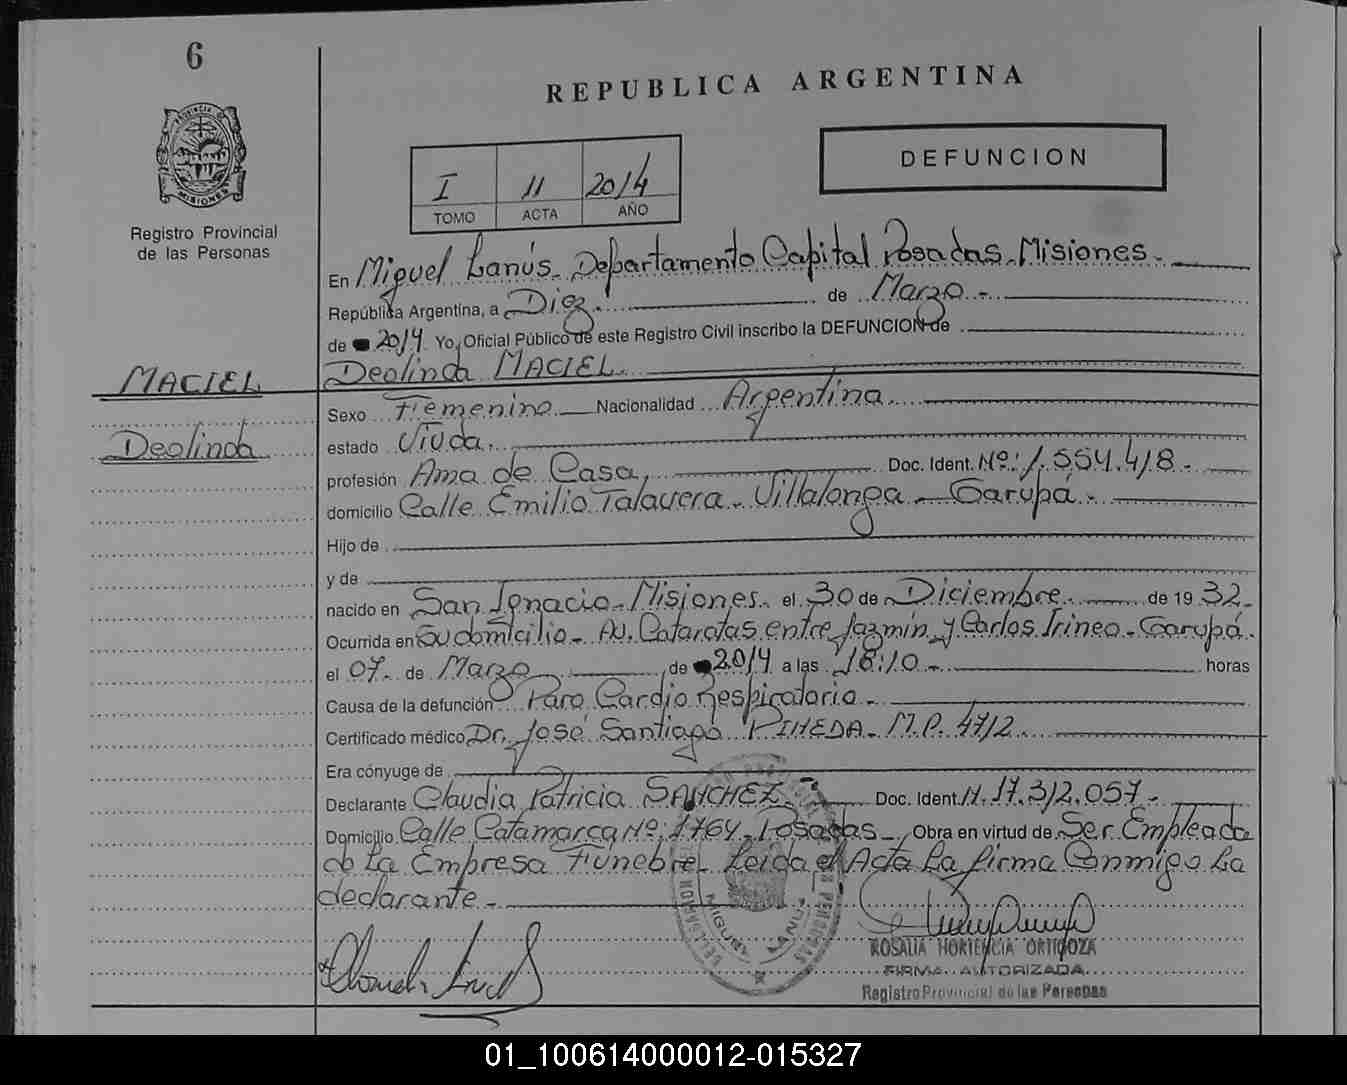 6
REPUBLICA ARGENTINA
PROVINCIA DE
MISIONES
Registro Provincial
de las Personas
I 11 2014
TOMO ACTA AÑO
DEFUNCION
En Miguel Lanús. Departamento Capital Posadas. Misiones.
República Argentina, a Diez. de Marzo.-
de 2014 Yo, Oficial Público de este Registro Civil inscribo la DEFUNCION de
MACIEL
Deolinda MACIEL.
Deolinda
Sexo Femenino Nacionalidad Argentina
estado Viuda.
profesión Ama de Casa, Doc. Ident. Nº: 1.554.418.-
domicilio Calle Emilio Talavera - Villalonga - Garupá.
Hijo de
y de
nacido en San Ignacio - Misiones. el 30 de Diciembre. de 19 32.
Ocurrida en Su domicilio - Av. Cataratas entre Jazmin y Carlos Irineo - Garupá.
el 07. de Marzo de 2014 a las 18:10.- horas
Causa de la defunción Paro Cardio Respiratorio.-
Certificado médico Dr. José Santiago PINEDA. M.P. 4712.
Era cónyuge de
Declarante Claudia Patricia SANCHEZ Doc. Ident. N. 17.312.057.-
Domicilio Calle Catamarca Nº: 1764. Posadas -, Obra en virtud de Ser Empleada
de La Empresa Funebre. Leida el Acta La firma Conmigo La
declarante.-
ROSALIA HORTENCIA ORTIGOZA
FIRMA AUTORIZADA
Registro Provincial de las Personas
01_100614000012-015327